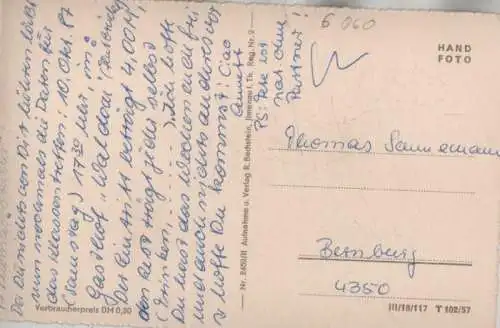 Da Du nichts von Dir hören läßt
nun nochmals die Daten für
das Klassentreffen: 10. Okt. 87
(Samstag) 17³⁰ Uhr, im
Gasthof "Waldom
Der Eintritt beträgt 4,00 M,
den Rest trägt jeder selbst
(Trinken, ......). Ich hoffe
Du hast das Wochenende frei
und auch nichts anderes vor
u. hoffe Du kommst! Ciao
Annett
PS: Peter ist
nat. ohne
Partner!
Verbraucherpreis DM 0,20
Nr. 2450/II Aufnahme u. Verlag R. Bechstein, Ilmenau i. Th. Reg. Nr. 2
6 060
HAND
FOTO
Thomas Sannemann
Bernburg
4350
III/18/117 T 102/57